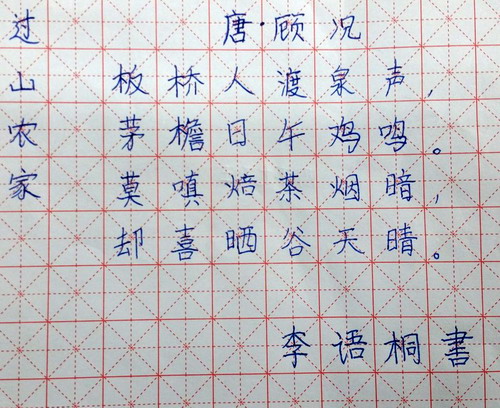 过山农家
唐·顾况
板桥人渡泉声，
茅檐日午鸡鸣。
莫嗔焙茶烟暗，
却喜晒谷天晴。
李语桐書